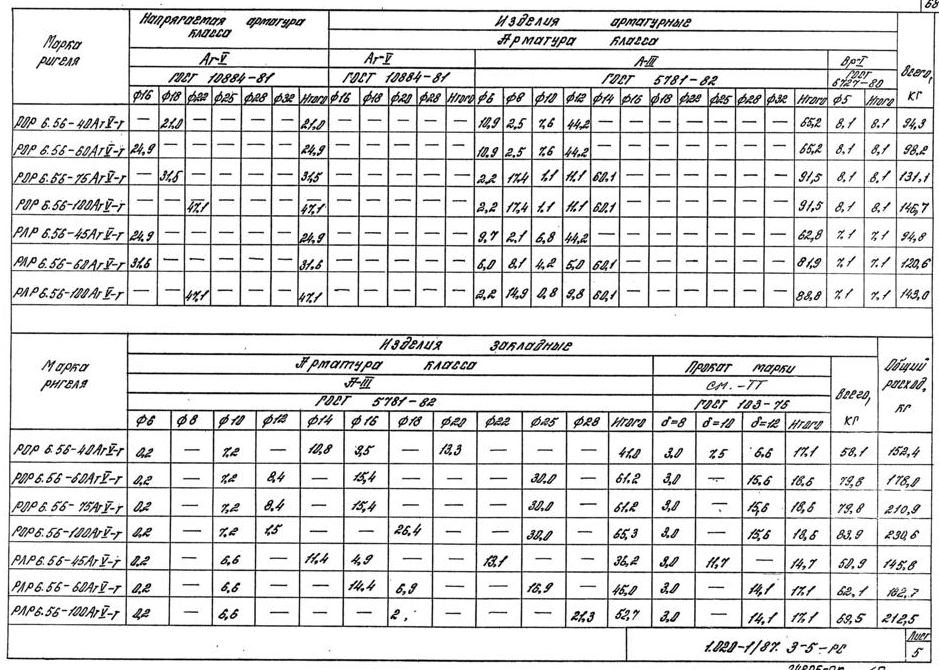 68
Марка ригеля | Напрягаемая арматура класса | Изделия арматурные | Всего, кг
Арматура класса
Ат-V | Ат-V | А-III | Вр-I
ГОСТ 10884-81 | ГОСТ 10884-81 | ГОСТ 5781-82 | ГОСТ 6727-80
ф16 ф18 ф22 ф25 ф28 ф32 Итого ф16 ф18 ф20 ф28 Итого ф6 ф8 ф10 ф12 ф14 ф16 ф18 ф22 ф25 ф28 ф32 Итого ф5 Итого
РОР 6.56-40АтV-т — 21,0 — — — — 21,0 — — — — — 10,9 2,5 7,6 44,2 — — — — — — — 65,2 8,1 8,1 94,3
РОР 6.56-60АтV-т 24,9 — — — — — 24,9 — — — — — 10,9 2,5 7,6 44,2 — — — — — — — 65,2 8,1 8,1 98,2
РОР 6.56-75АтV-т — 31,5 — — — — 31,5 — — — — — 2,2 17,4 1,1 11,1 60,1 — — — — — — 91,5 8,1 8,1 131,1
РОР 6.56-100АтV-т — — 47,1 — — — 47,1 — — — — — 2,2 17,4 1,1 11,1 60,1 — — — — — — 91,5 8,1 8,1 146,7
РЛР 6.56-45АтV-т 24,9 — — — — — 24,9 — — — — — 9,7 2,1 6,8 44,2 — — — — — — — 62,8 7,1 7,1 94,8
РЛР 6.56-60АтV-т 31,6 — — — — — 31,6 — — — — — 6,0 8,1 4,2 5,0 60,1 — — — — — — 81,9 7,1 7,1 120,6
РЛР 6.56-100АтV-т — — 47,1 — — — 47,1 — — — — — 2,2 14,9 0,8 9,8 60,1 — — — — — — 88,8 7,1 7,1 143,0
Марка ригеля | Изделия закладные | Общий расход, кг
Арматура класса | Прокат марки | Всего, кг
А-III | См.-ТТ
ГОСТ 5781-82 | ГОСТ 103-76
ф6 ф8 ф10 ф12 ф14 ф16 ф18 ф20 ф22 ф25 ф28 Итого δ=8 δ=10 δ=12 Итого
РОР 6.56-40АтV-т 0,2 — 7,2 — 10,8 9,5 — 13,3 — — — 41,0 3,0 7,5 6,6 17,1 58,1 152,4
РОР 6.56-60АтV-т 0,2 — 7,2 8,4 — 15,4 — — — 30,0 — 61,2 3,0 — 15,6 18,6 79,8 178,0
РОР 6.56-75АтV-т 0,2 — 7,2 8,4 — 15,4 — — — 30,0 — 61,2 3,0 — 15,6 18,6 79,8 210,9
РОР 6.56-100АтV-т 0,2 — 7,2 1,5 — — 26,4 — — 30,0 — 65,3 3,0 — 15,6 18,6 83,9 230,6
РЛР 6.56-45АтV-т 0,2 — 6,6 — 11,4 4,9 — — 13,1 — — 36,2 3,0 11,7 — 14,7 50,9 145,8
РЛР 6.56-60АтV-т 0,2 — 6,6 — — 14,4 6,9 — — 16,9 — 45,0 3,0 — 14,1 17,1 62,1 182,7
РЛР 6.56-100АтV-т 0,2 — 6,6 — — — — — — 21,3 52,7 3,0 — 14,1 17,1 69,5 212,5
1.020-1/87. 3-5-РС
Лист
5